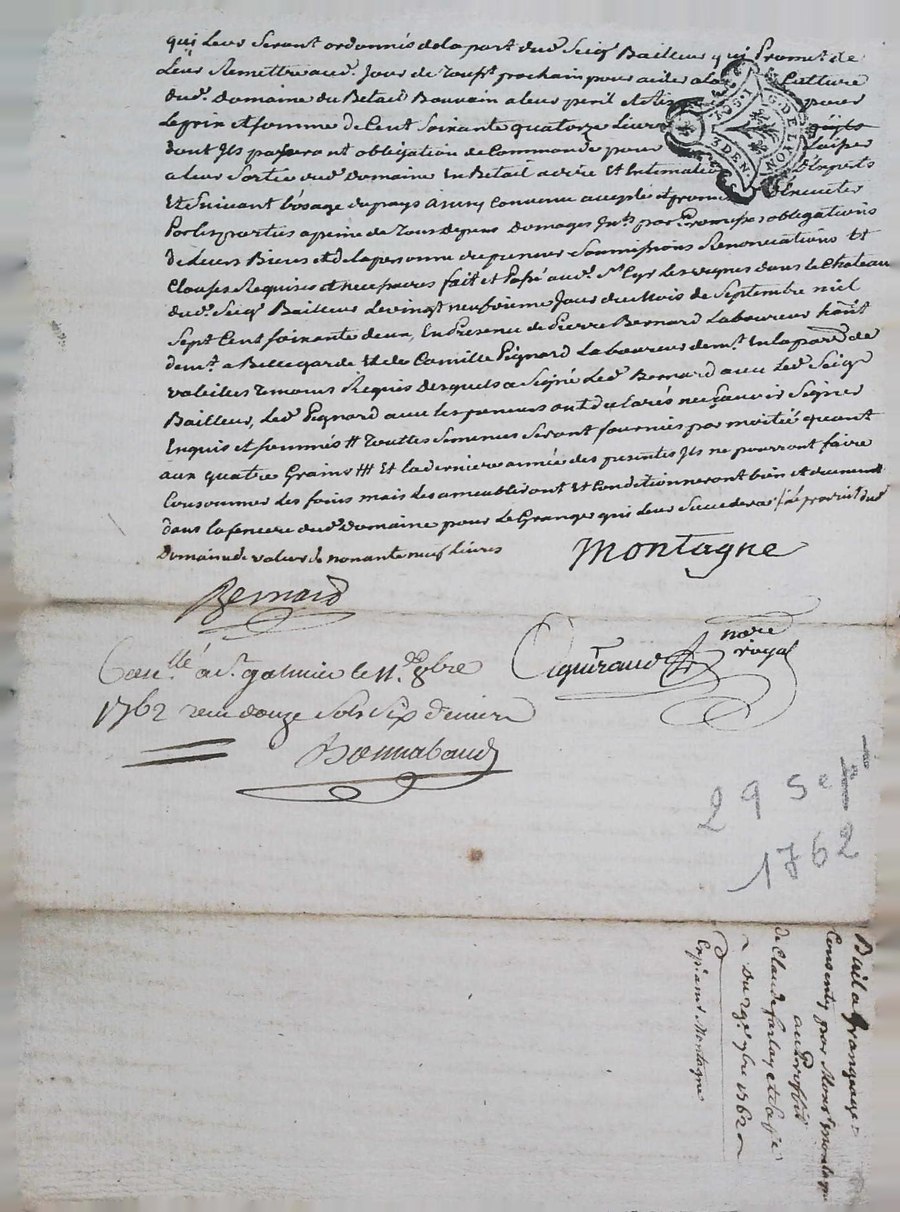 qui Leur Seront ordonnés de la part dud. Seigr Bailleur qui Promet de
Leur Remettre aud. Jour de Toust prochain pour aider a la Culture
dud. Domaine du Betail Bouvain a leur peril et pour
Le prix et somme de Cent Soixante quatorze Livres
dont Ils passeront obligation de Commande pour Laisser
a leur Sortie dud Domaine En Betail a dire d'Experts
Et Suivant L'usage du pays ainsy Convenu accepté et promis Executer
Par les parties a peine de Tous depens Domages Jnts par Promesses obligations
De Leurs Biens et de la personne du preneur Soumissions Renonciations Et
Clauses Requises et necessaires fait et Passé aud. St Cyr Les vignes dans le Chateau
dud. Seigr Bailleur Le vingt neufvieme Jour du Mois de Septembre mil
Sept Cent soixante deux, En Presence de Pierre Bernard Laboureur
demt a Bellegarde Et de Camille Pignard Laboureur demt En la parse de
valeille temoins Requis desquels a Signé Led. Bernard avec Led. Seigr
Bailleur, Led. Pignard avec les preneurs ont declarés ne sçavoir Signer
Enquis et sommés # Touttes Semences Seront fournies par moitié quant
aux quatre Grains ## Et la derniere année des presentes Ils ne pourront faire
Consommer Les foins mais Les ameubliront Et Conditionneront bien et duement
dans la feniere dud. Domaine pour Le Granger qui Leur Succedera / le produit dud
Domaine de valeur de nonante neuf Livres
Montagne
Bernard
nore
royal
a St galmier le 11 8bre
1762 reçu douze Sols Six deniers
Bonnabaud
29 Set
1762
Bail a Grangeage
Consenty par Monsr Montagne
au Proffit
de Claude
Du 29e 7bre 1762
Montagne
G. DE LYON
3 DEN.